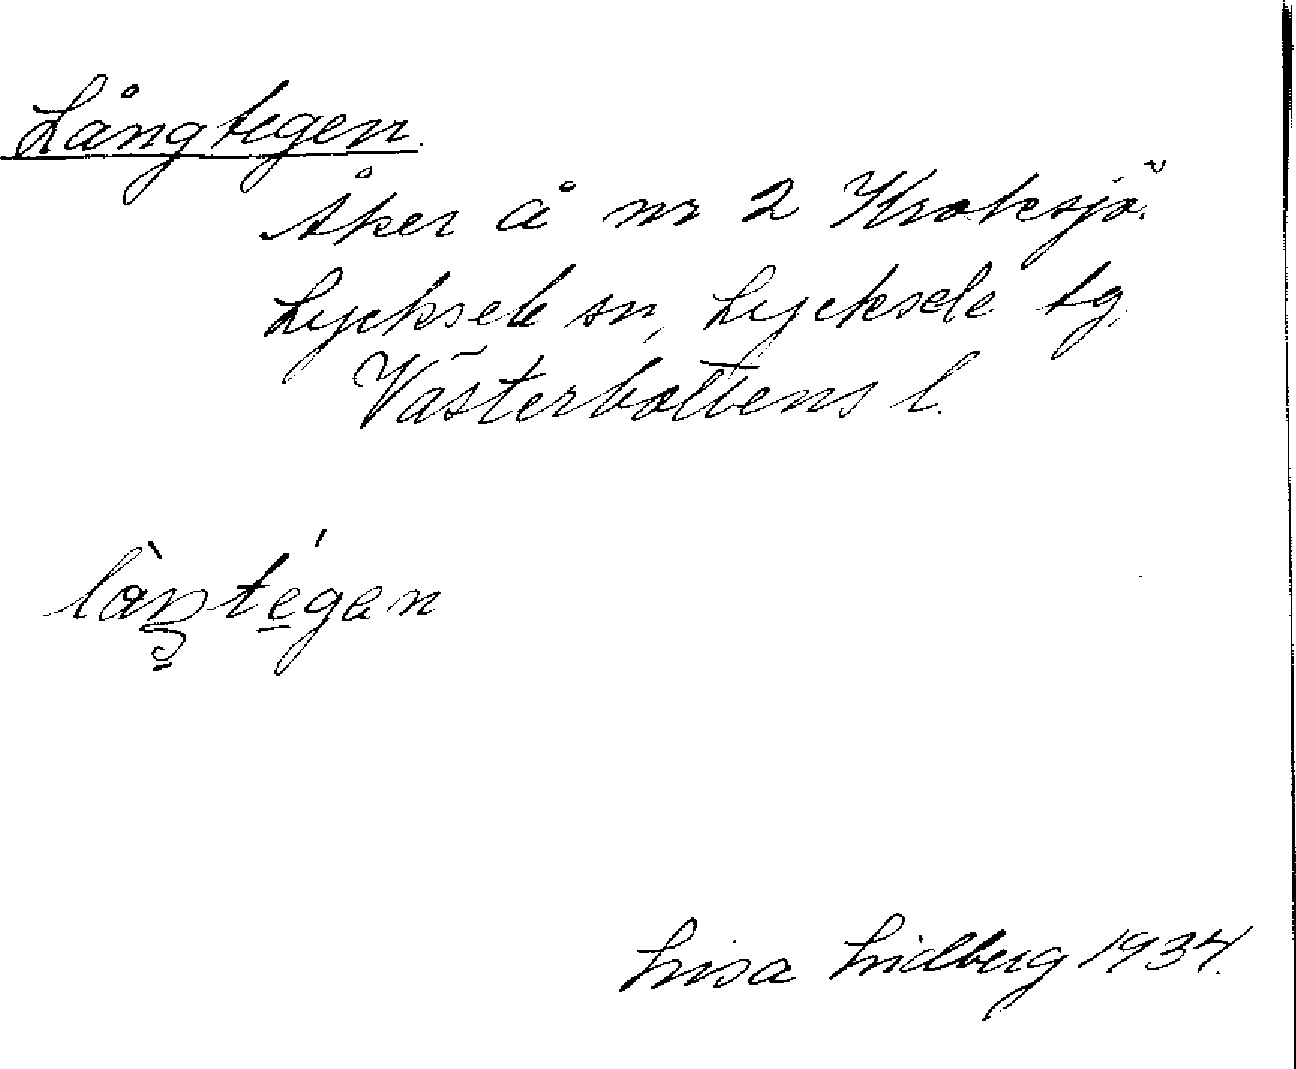 Långtegen.
Åker å nr 2 Kroksjö.
Lycksele sn, Lycksele tg.
Västerbottens l.
Lisa Lidberg 1934.